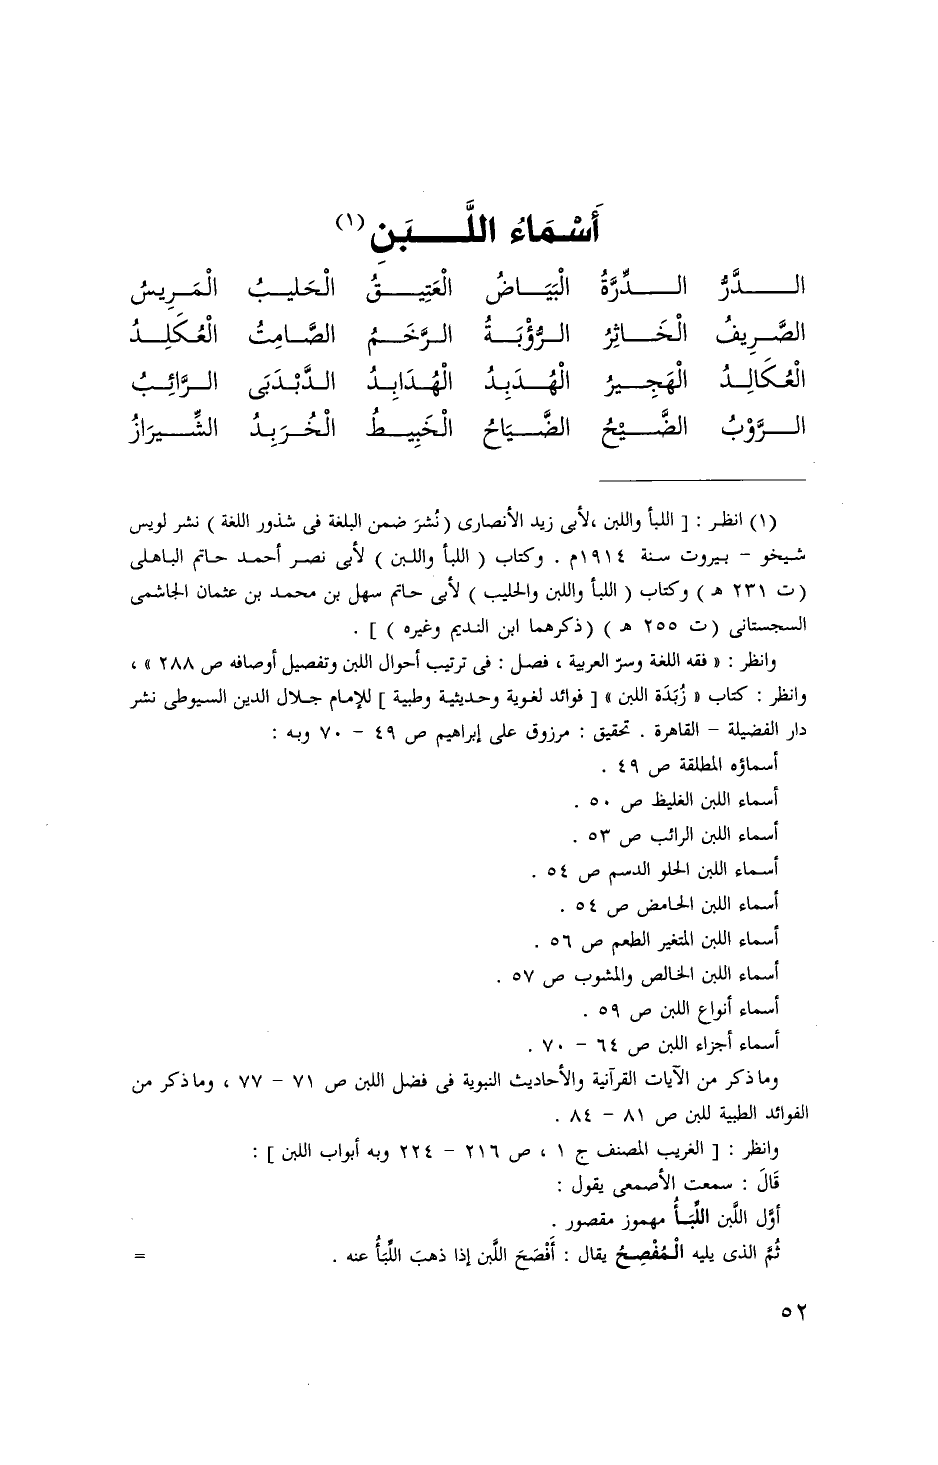 أَسْمَاءُ اللَّبَنِ (١)
الدَّرُّ الدِّرَّةُ الْبَيَاضُ الْعَتِيقُ الْحَلِيبُ الْمَرِيسُ
الصَّرِيفُ الْخَاثِرُ الرُّوْبَةُ الرَّخَمُ الصَّامِتُ الْعُكَلِدُ
الْعُكَالِدُ الْهَجِيرُ الْهُدَبِدُ الْهُدَابِدُ الدَّبْدَبَى الرَّائِبُ
الرَّوْبُ الضَّيْحُ الضَّيَاحُ الْخَبِيطُ الْخُرَبِدُ الشِّيرَازُ
(١) انظر : [ اللبأ واللبن ،لأبى زيد الأنصارى (نُشرَ ضمن البلغة فى شذور اللغة ) نشر لويس
شيخو – بيروت سنة ١٩١٤م . وكتاب ( اللبأ واللبن ) لأبى نصر أحمد حاتم الباهلى
(ت ٢٣١ هـ ) وكتاب ( اللبأ واللبن والحليب ) لأبى حاتم سهل بن محمد بن عثمان الجاشمى
السجستانى (ت ٢٥٥ هـ ) (ذكرهما ابن النديم وغيره ) ] .
وانظر : « فقه اللغة وسرّ العربية ، فصل : فى ترتيب أحوال اللبن وتفصيل أوصافه ص ٢٨٨ » ،
وانظر : كتاب « زُبَدَة اللبن » [ فوائد لغوية وحديثية وطبية ] للإمام جلال الدين السيوطى نشر
دار الفضيلة – القاهرة . تحقيق : مرزوق على إبراهيم ص ٤٩ – ٧٠ وبه :
أسماؤه المطلقة ص ٤٩ .
أسماء اللبن الغليظ ص ٥٠ .
أسماء اللبن الرائب ص ٥٣ .
أسماء اللبن الحلو الدسم ص ٥٤ .
أسماء اللبن الحامض ص ٥٤ .
أسماء اللبن المتغير الطعم ص ٥٦ .
أسماء اللبن الخالص والمشوب ص ٥٧ .
أسماء أنواع اللبن ص ٥٩ .
أسماء أجزاء اللبن ص ٦٤ – ٧٠ .
وماذكر من الآيات القرآنية والأحاديث النبوية فى فضل اللبن ص ٧١ – ٧٧ ، وماذكر من
الفوائد الطبية للبن ص ٨١ – ٨٤ .
وانظر : [ الغريب المصنف ج ١ ، ص ٢١٦ – ٢٢٤ وبه أبواب اللبن ] :
قَالَ : سمعت الأصمعى يقول :
أوَّل اللَّبن اللِّبَأُ مهموز مقصور .
ثُمَّ الذى يليه الْمُفْصِحُ يقال : أَفْصَحَ اللَّبن إذا ذهبَ اللِّبَأُ عنه . =
٥٢